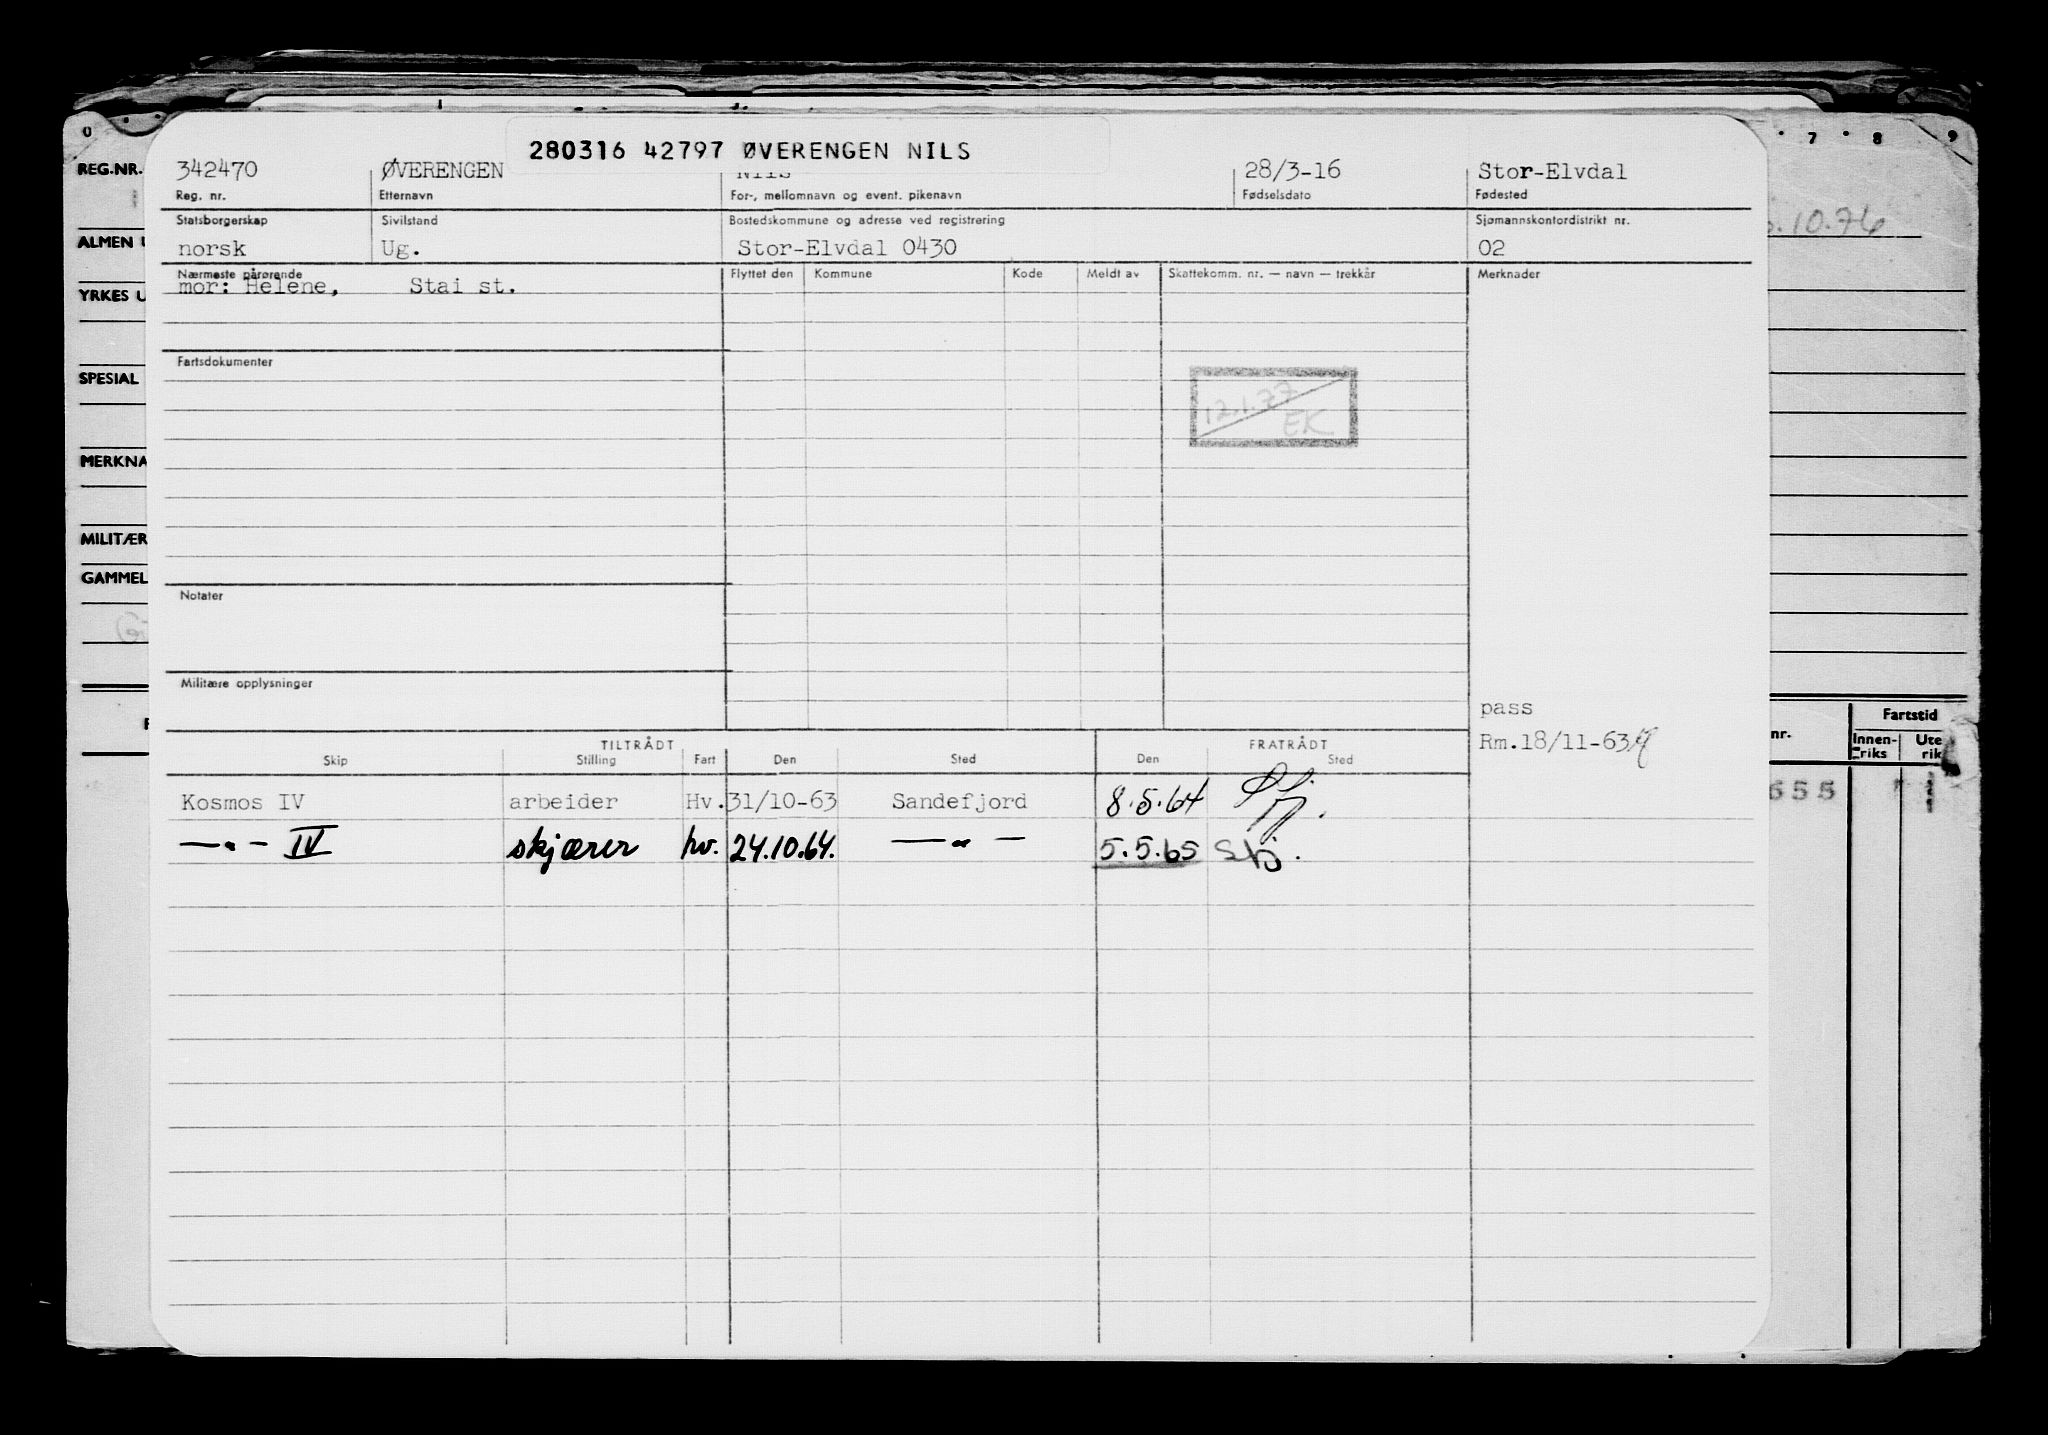 0 7 8 9
280316 42797 ØVERENGEN NILS
REG.NR. 342470 ØVERENGEN Nils 28/3-16 Stor-Elvdal
Reg. nr. Etternavn For-, mellomnavn og event. pikenavn Fødselsdato Fødested
Statsborgerskap Sivilstand Bostedskommune og adresse ved registrering Sjømannskontordistrikt nr.
ALMEN norsk Ug. Stor-Elvdal 0430 02 .10.76
Nærmeste pårørende Flyttet den Kommune Kode Meldt av Skattekomm. nr. — navn — trekkår Merknader
mor: Helene, Stai st.
YRKES
Fartsdokumenter
SPESIAL
12.1.77
EK
MERKNA
MILITÆR
GAMMEL
Notater
Militære opplysninger
pass
Rm.18/11-63
nr. Fartstid
Innen-riks Ute rik
TILTRÅDT FRATRÅDT
Skip Stilling Fart Den Sted Den Sted
Kosmos IV arbeider Hv. 31/10-63 Sandefjord 8.5.64 Sfj. 655
— " — IV skjærer hv. 24.10.64. — " — 5.5.65 Sfj.